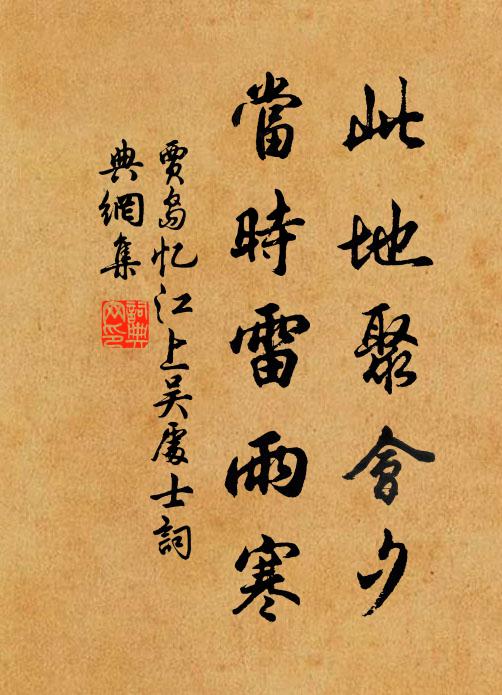 此地聚會夕
當時雷雨寒
賈島忆江上吴處士詞
典網集
詞典网印